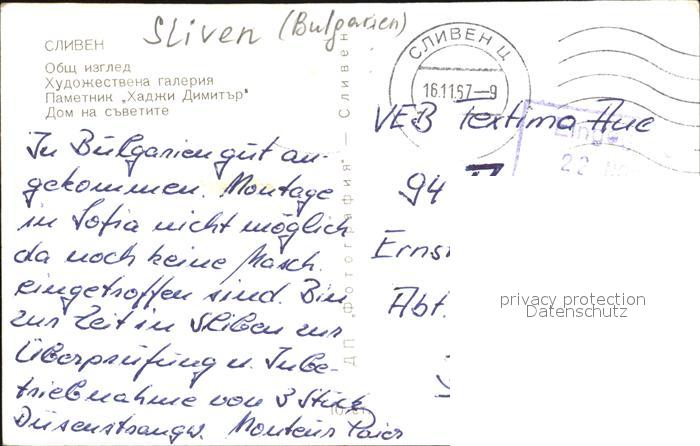 Sliven (Bulgarien)
СЛИВЕН
Общ изглед
Художествена галерия
Паметник „Хаджи Димитър"
Дом на съветите
СЛИВЕН Ц
16.11.67—9
In Bulgarien gut an-
gekommen. Montage
in Sofia nicht möglich
da noch keine Masch.
eingetroffen sind. Bin
zur Zeit in Sliben zur
Überprüfung u. Inbe-
triebnahme von 3 Stück
Monteur
ДП „Фотография" — Сливен
VEB Textima Aue
22 Nov
94
Ernst
Abt.
privacy protection
Datenschutz